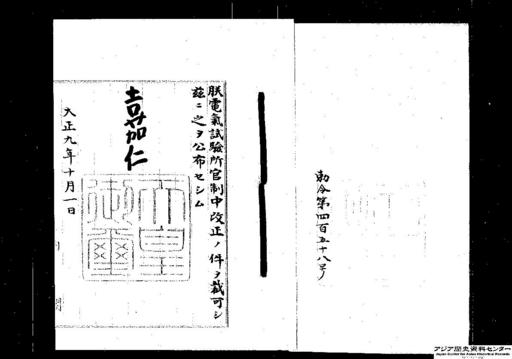 勅令第四百五十八号
朕電氣試驗所官制中改正ノ件ヲ裁可シ
茲ニ之ヲ公布セシム
嘉仁
天皇御璽
大正九年十月一日
アジア歴史資料センター
Japan Center for Asian Historical Records